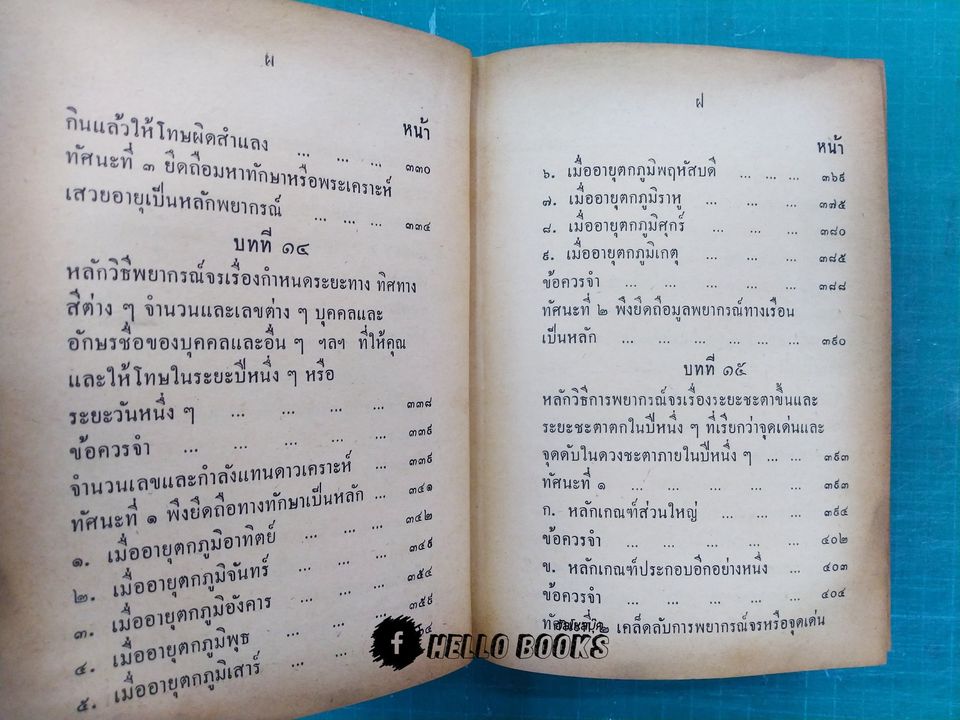 ผ
หน้า
กินแล้วให้โทษผิดสำแลง ... ... ... ๓๓๐
ทัศนะที่ ๓ ยึดถือมหาทักษาหรือพระเคราะห์
เสวยอายุเป็นหลักพยากรณ์ ... ... ... ๓๓๔
บทที่ ๑๔
หลักวิธีพยากรณ์จรเรื่องกำหนดระยะทาง ทิศทาง
สีต่าง ๆ จำนวนและเลขต่าง ๆ บุคคลและ
อักษรชื่อของบุคคลและอื่น ๆ ฯลฯ ที่ให้คุณ
และให้โทษในระยะปีหนึ่ง ๆ หรือ
ระยะวันหนึ่ง ๆ ... ... ... ... ๓๓๘
ข้อควรจำ ... ... ... ... ... ๓๓๙
จำนวนเลขและกำลังแทนดาวเคราะห์ ... ๓๓๙
ทัศนะที่ ๑ พึงยึดถือทางทักษาเป็นหลัก ... ๓๔๑
๑. เมื่ออายุตกภูมิอาทิตย์ ... ... ... ๓๔๒
๒. เมื่ออายุตกภูมิจันทร์ ... ... ...
๓. เมื่ออายุตกภูมิอังคาร ... ... ... ๓๕๔
๔. เมื่ออายุตกภูมิพุธ ... ...
๕. เมื่ออายุตกภูมิเสาร์ ...
ฝ
หน้า
๖. เมื่ออายุตกภูมิพฤหัสบดี ... ... ... ๓๖๙
๗. เมื่ออายุตกภูมิราหู ... ... ... ๓๗๕
๘. เมื่ออายุตกภูมิศุกร์ ... ... ... ๓๘๐
๙. เมื่ออายุตกภูมิเกตุ ... ... ... ๓๘๕
ข้อควรจำ ... ... ... ... ... ๓๘๘
ทัศนะที่ ๒ พึงยึดถือมูลพยากรณ์ทางเรือน
เป็นหลัก ... ... ... ... ... ... ๓๙๐
บทที่ ๑๕
หลักวิธีการพยากรณ์จรเรื่องระยะชะตาขึ้นและ
ระยะชะตาตกในปีหนึ่ง ๆ ที่เรียกว่าจุดเด่นและ
จุดดับในดวงชะตาภายในปีหนึ่ง ๆ ... ... ๓๙๓
ทัศนะที่ ๑ ... ... ... ... ... ๓๙๓
ก. หลักเกณฑ์ส่วนใหญ่ ... ... ... ๓๙๔
ข้อควรจำ ... ... ... ... ... ๔๐๒
ข. หลักเกณฑ์ประกอบอีกอย่างหนึ่ง ... ๔๐๓
ข้อควรจำ ... ... ... ... ... ๔๐๔
ทัศนะที่ ๒ เคล็ดลับการพยากรณ์จรหรือจุดเด่น
f HELLO BOOKS